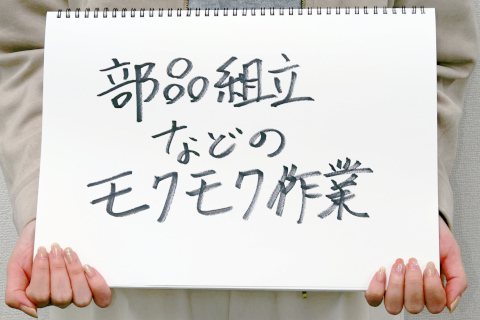 部品組立
などの
モクモク作業